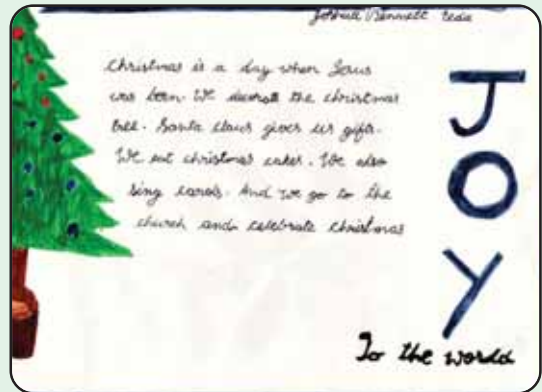 Joshua Bennett
Christmas is a day when Jesus
was born. We decorate the christmas
tree. Santa claus gives us gifts.
We eat christmas cakes. We also
sing carols. And we go to the
church and celebrate christmas
JOY
To the world